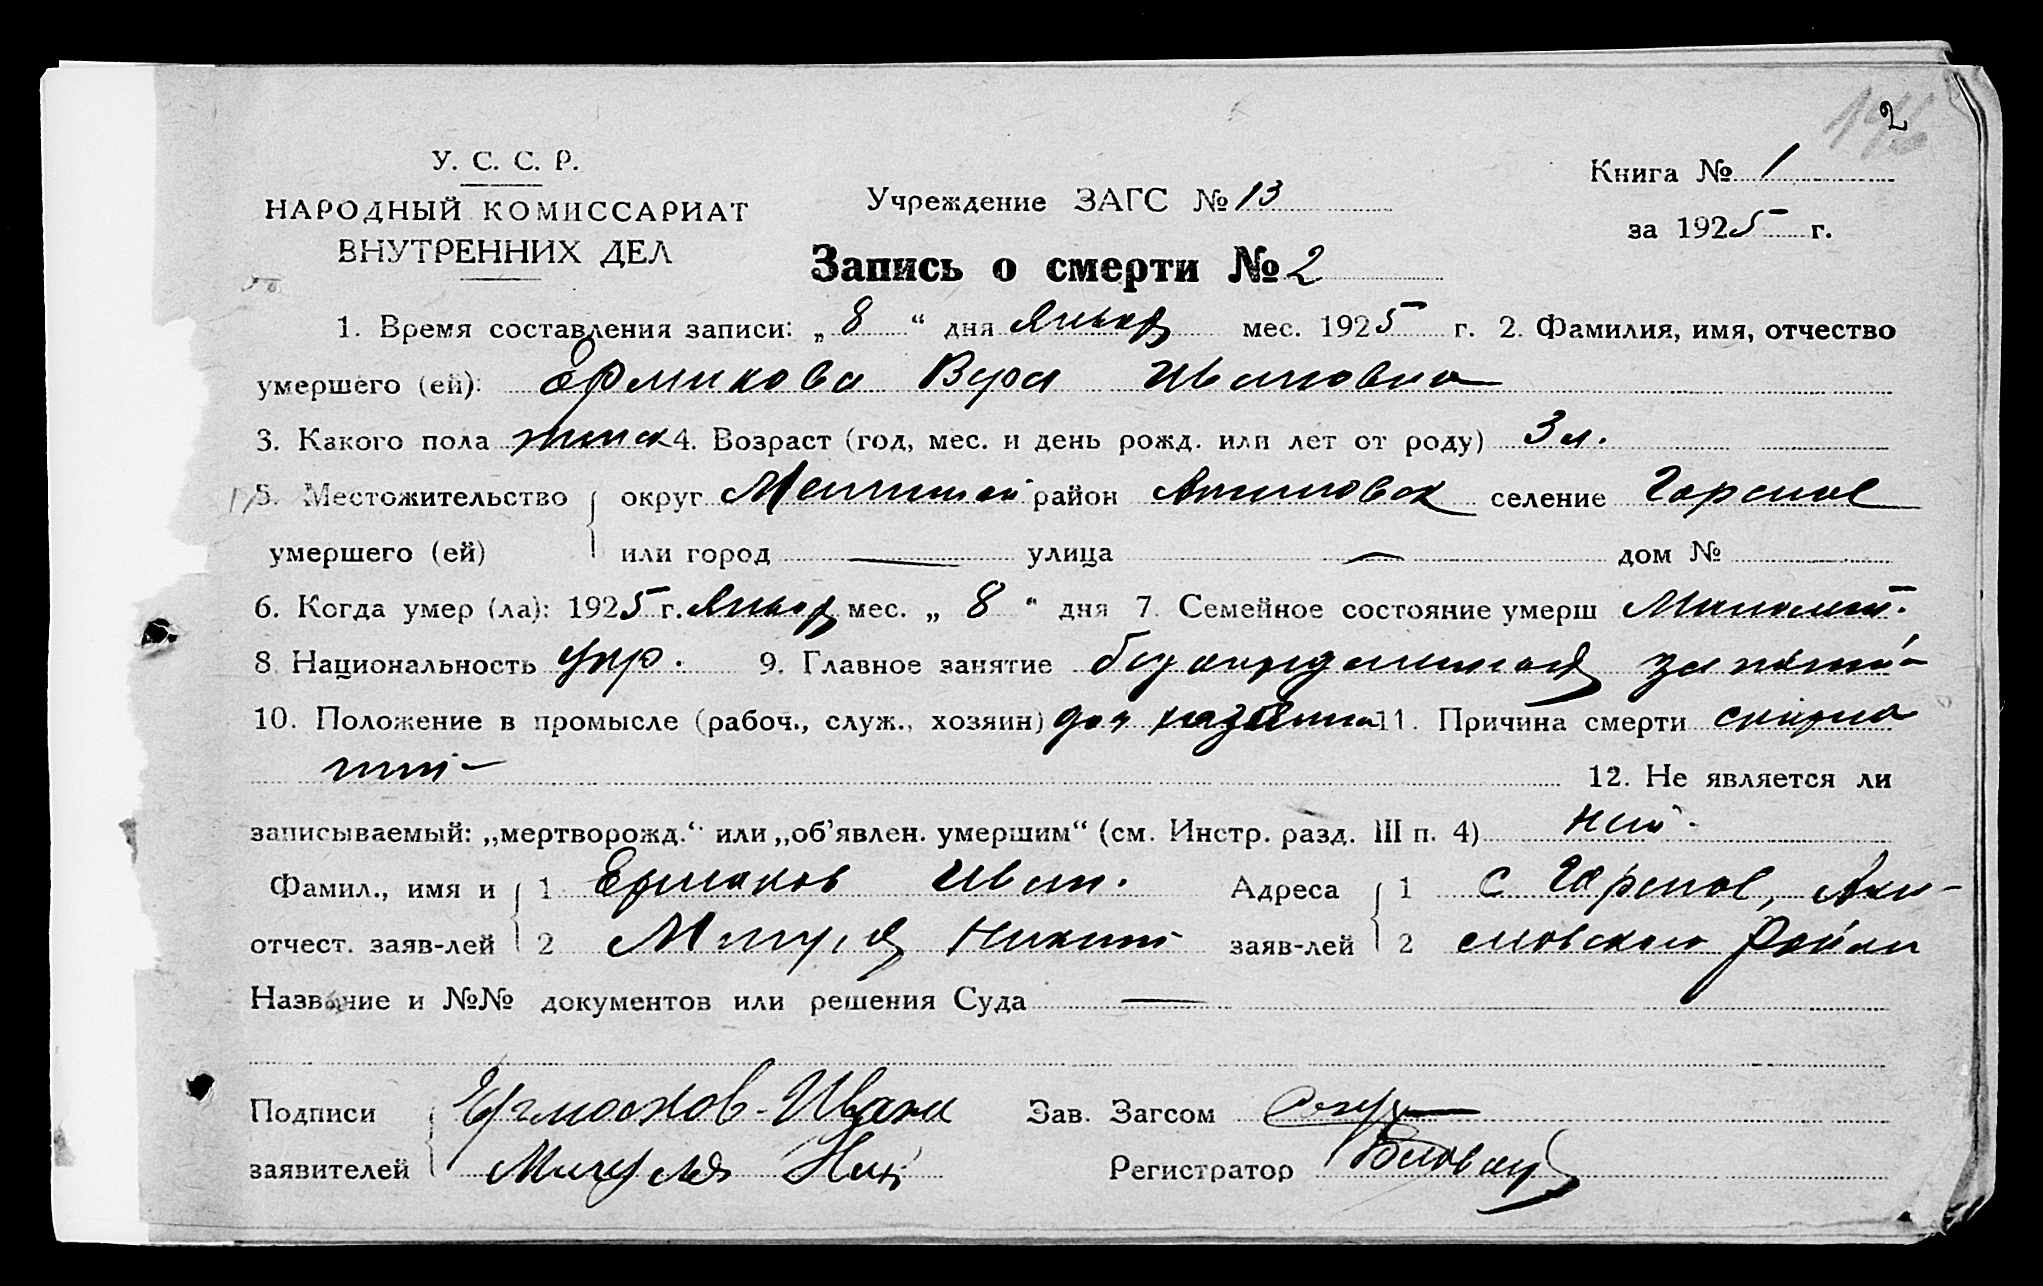 2
У. С. С. Р.
НАРОДНЫЙ КОМИССАРИАТ
ВНУТРЕННИХ ДЕЛ
Учреждение ЗАГС № 13
Книга № 1
за 1925 г.
Запись о смерти № 2
1. Время составления записи: „ 8 “ дня января мес. 1925 г. 2. Фамилия, имя, отчество
умершего (ей): Ермакова Вера Ивановна
3. Какого пола женск 4. Возраст (год, мес. и день рожд. или лет от роду) 3 л.
5. Местожительство округ район Акимовск селение Горелое
умершего (ей) или город — улица — дом №
6. Когда умер (ла): 1925 г. января мес. „ 8 “ дня 7. Семейное состояние умерш Малолет.
8. Национальность Укр. 9. Главное занятие
10. Положение в промысле (рабоч., служ., хозяин) 11. Причина смерти скарла
тин-
12. Не является ли
записываемый: „мертворожд.“ или „об’явлен. умершим“ (см. Инстр. разд. III п. 4) нет.
Фамил., имя и 1 Ермаков Иван. Адреса 1 с Горелое, Аки-
отчест. заяв-лей 2 Никит заяв-лей 2 мовского района
Название и №№ документов или решения Суда —
Подписи Ермаков-Иван Зав. Загсом
заявителей Ник. Регистратор